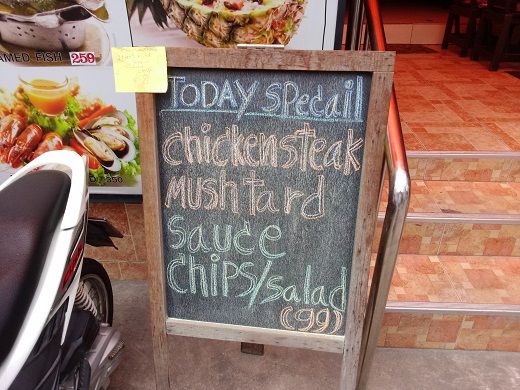 AMED FISH 259
TODAY SPECAIL
chickensteak
MUShtard
Sauce
CHIPS/Salad
(99)
350